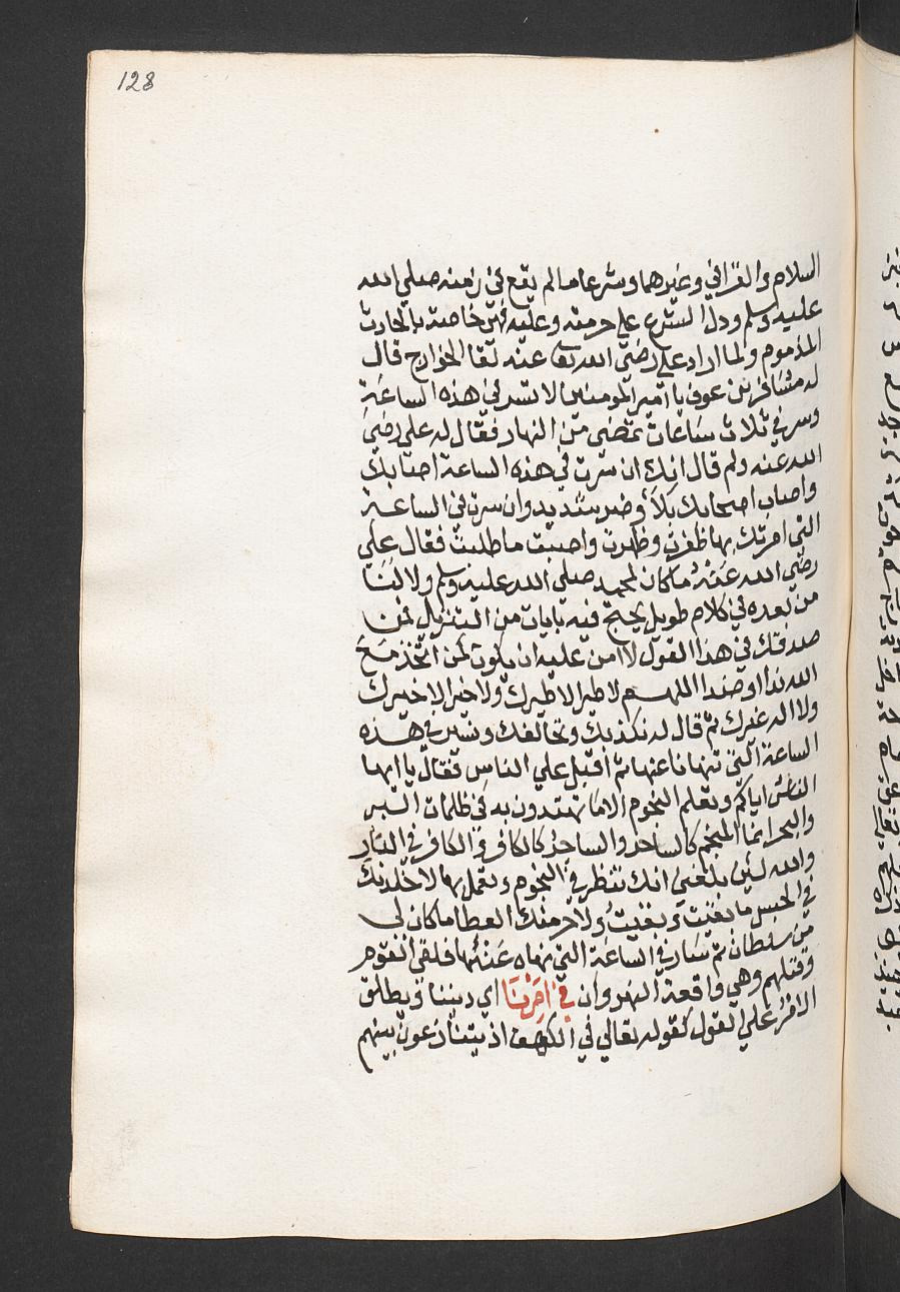 128
السلام والقرافي وغيرهما وشرعا ما لم يقع في زمنه صلي الله
عليه وسلم ودل الشرع علي حرمته وعليه فهي خاصة بالحادث
المذموم ولما اراد علي رضي الله تعا عنه لقا الخوارج قال
له مسافر بن عوف يا امير المومنين لا تسر في هذه الساعة
وسر في ثلاث ساعات تمضي من النهار فقال له علي رضي
الله عنه ولم قال انك ان سرت في هذه الساعة اصابك
واصاب اصحابك بلاء وضر شديد وان سرت في الساعة
التي امرتك بها ظفرت وظهرت واصبت ما طلبت فقال علي
رضي الله عنه ما كان لمحمد صلي الله عليه وسلم ولا لنا
من بعده في كلام طويل يحتج فيه بايات من التنزيل فمن
صدقك في هذا القول لا امن عليه ان يكون كمن اتخذ مع
الله ندا او ضدا اللهم لا طير الا طيرك ولا خير الا خيرك
ولا اله غيرك ثم قال له نكذبك ونخالفك ونسير في هذه
الساعة التي تنهانا عنها ثم اقبل علي الناس فقال يا ايها
الناس اياكم وتعلم النجوم الا ما تهتدون به في ظلمات البر
والبحر انما المنجم كالساحر والساحر كالكافر والكافر في النار
والله لئن بلغني انك تنظر في النجوم وتعمل بها لاخلدنك
في الحبس ما بقيت وبقيتُ ولاحرمنك العطا ما كان لي
من سلطان ثم سار في الساعة التي نهاه عنها فلقي القوم
وقتلهم وهي واقعة النهروان في امرنا اي ديننا ويطلق
الامر علي القول كقوله تعالي في الكهف اذ يتنازعون بينهم